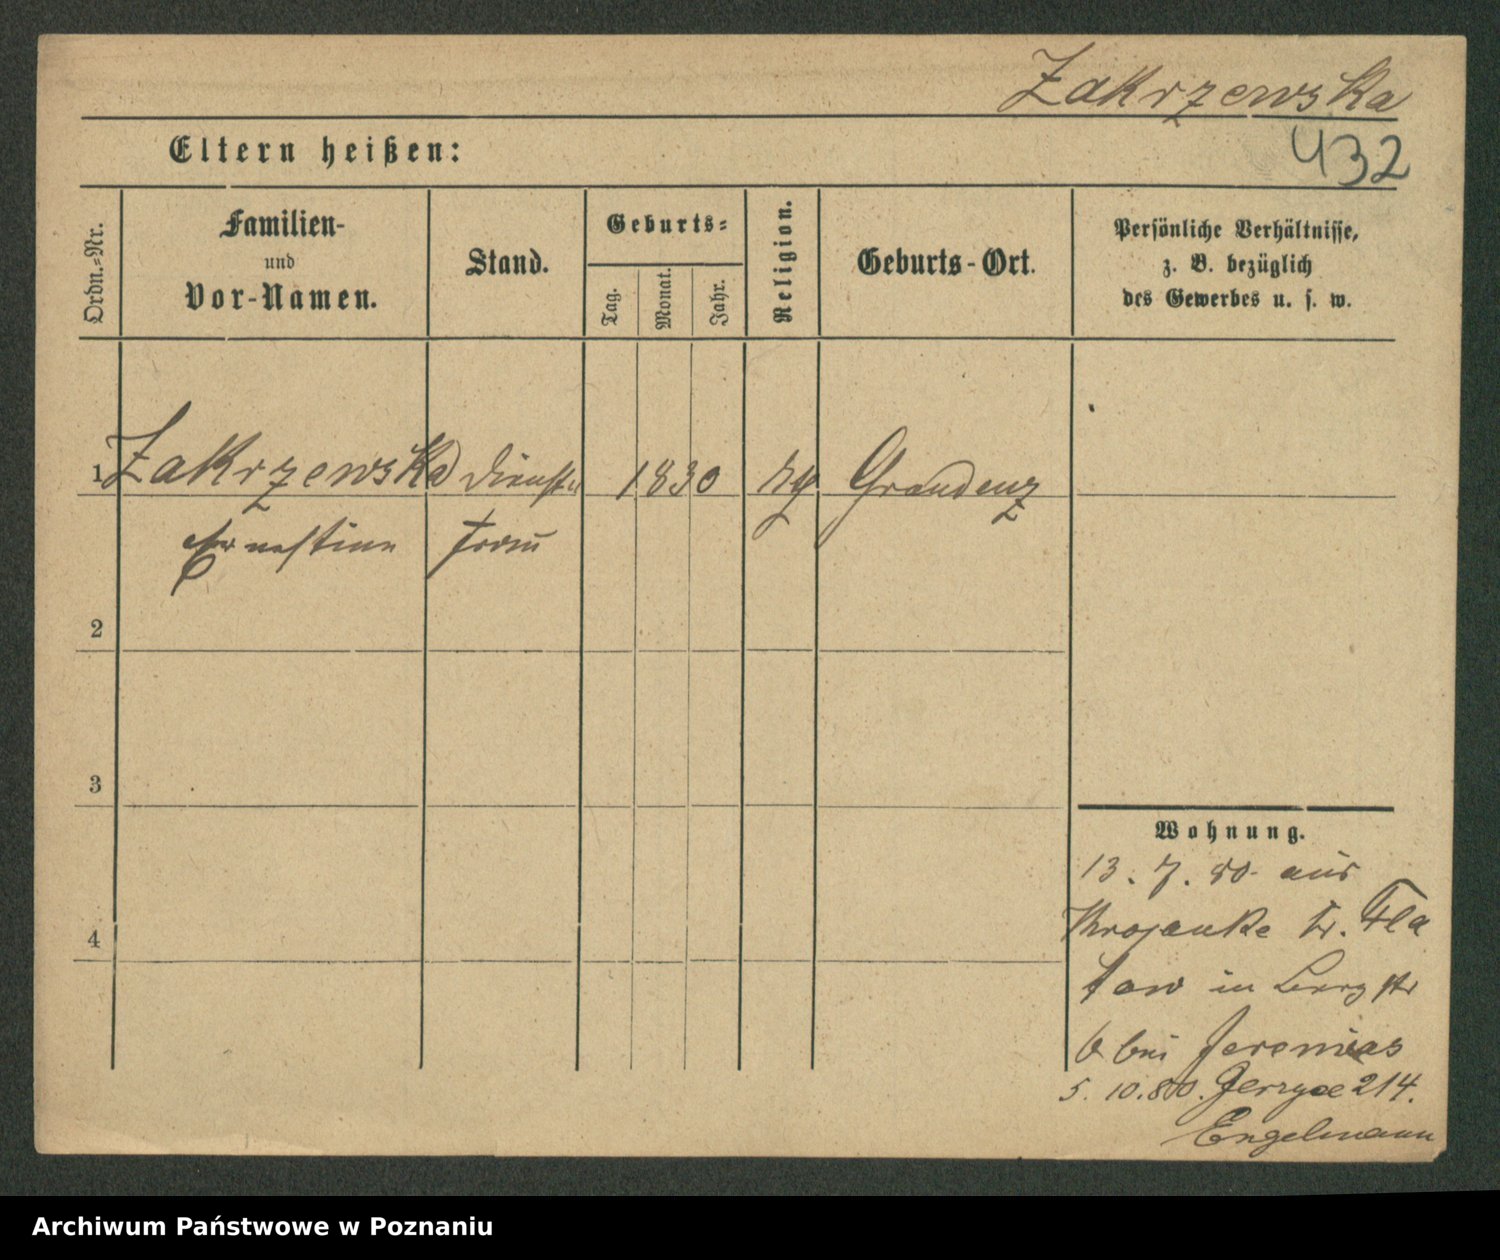 Zakrzewska
432
Eltern heißen:
Ordn.-Nr.
Familien-
und
Vor-Namen.
Stand.
Geburts-
Tag.
Monat.
Jahr.
Religion.
Geburts-Ort.
Persönliche Verhältnisse,
z. B. bezüglich
des Gewerbes u. s. w.
1 Zakrzewska Dienst 1830 Graudenz
Ernestine frau
2
3
4
Wohnung.
13. 7. 80. aus
Krojanke Kr. Fla
tow in Berg str
6 bei Jeremias
5. 10. 80. Jerzyce 214.
Engelmann
Archiwum Państwowe w Poznaniu